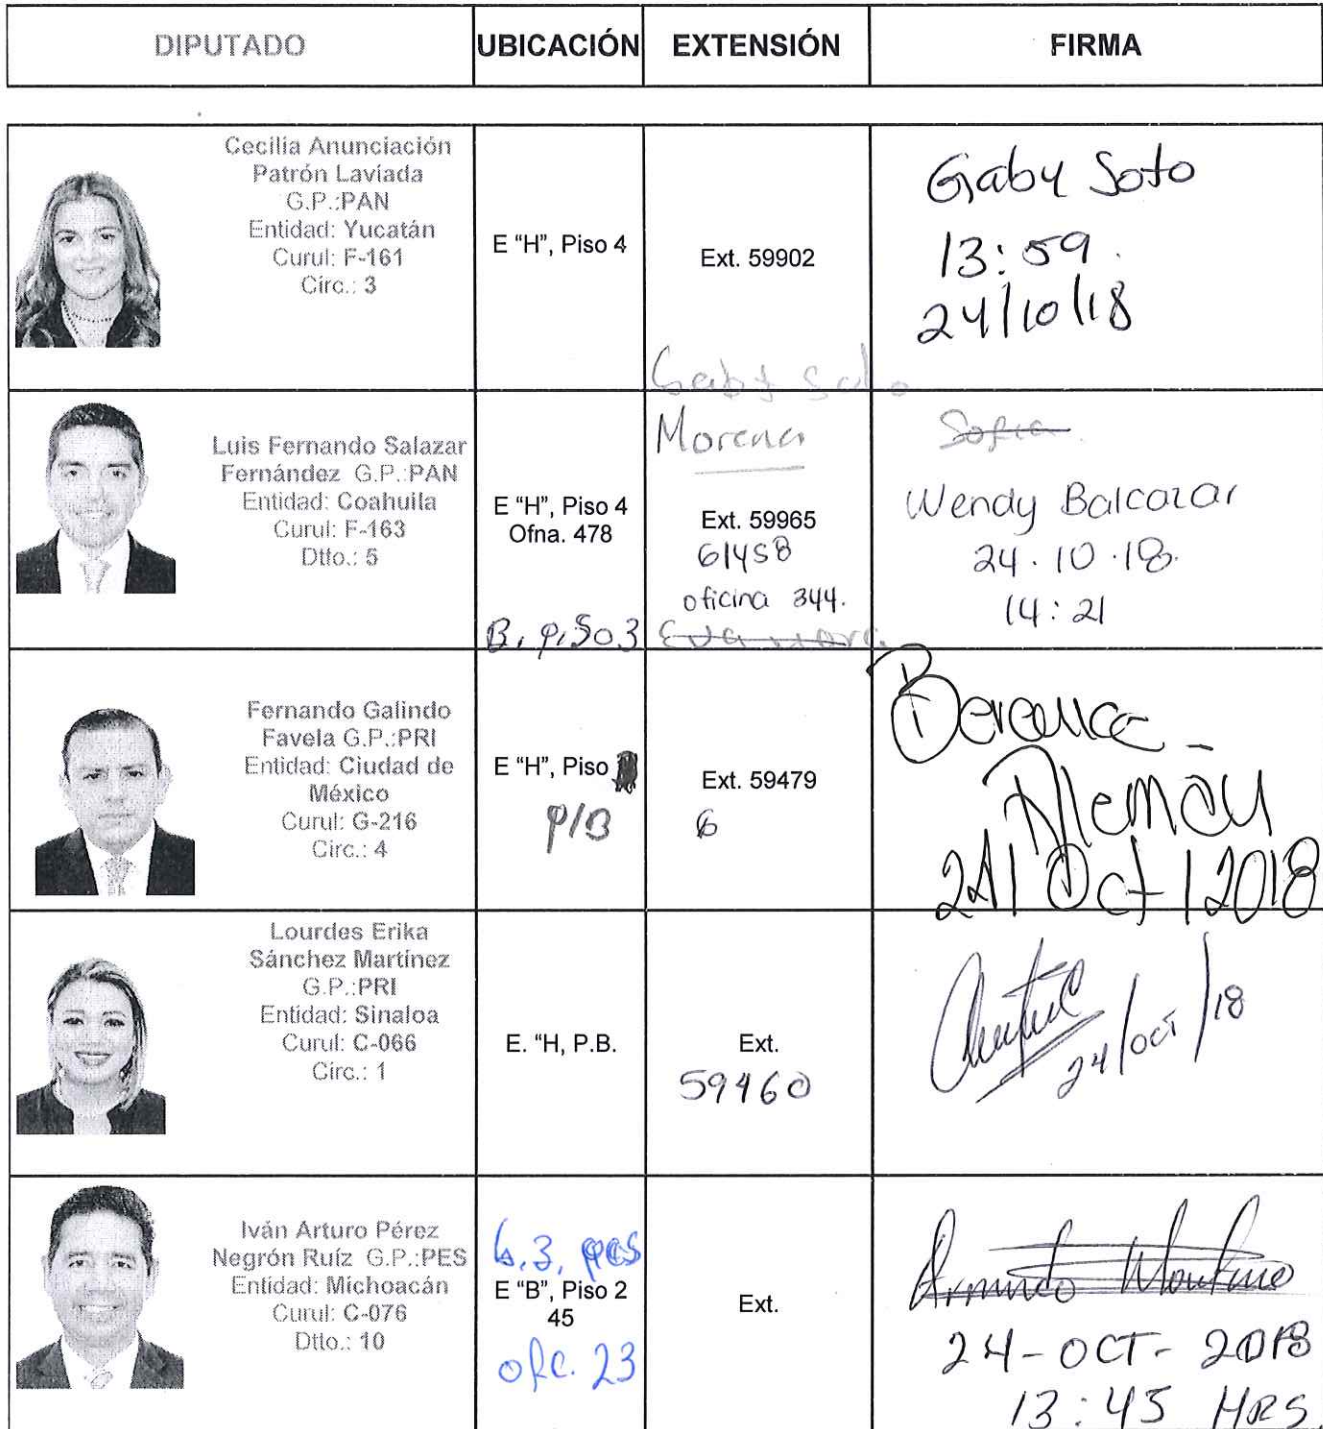 DIPUTADO UBICACIÓN EXTENSIÓN FIRMA
Cecilia Anunciación
Patrón Laviada
G.P.:PAN
Entidad: Yucatán
Curul: F-161
Circ.: 3
E "H", Piso 4
Ext. 59902
Gaby Soto
13:59.
24/10/18
Gaby Soto
Luis Fernando Salazar
Fernández G.P.:PAN
Entidad: Coahuila
Curul: F-163
Dtto.: 5
E "H", Piso 4
Ofna. 478
B, piso 3
Morena
Ext. 59965
61458
oficina 344.
Sofia
Wendy Balcazar
24.10.18.
14:21
Fernando Galindo
Favela G.P.:PRI
Entidad: Ciudad de
México
Curul: G-216
Circ.: 4
E "H", Piso
P/B
Ext. 59479
6
Berenice
Alemán
24/Oct/2018
Lourdes Erika
Sánchez Martínez
G.P.:PRI
Entidad: Sinaloa
Curul: C-066
Circ.: 1
E. "H, P.B.
Ext.
59460
24/oct/18
Iván Arturo Pérez
Negrón Ruíz G.P.:PES
Entidad: Michoacán
Curul: C-076
Dtto.: 10
E "B", Piso 2
45
ofc. 23
Ext.
24-OCT-2018
13:45 HRS.